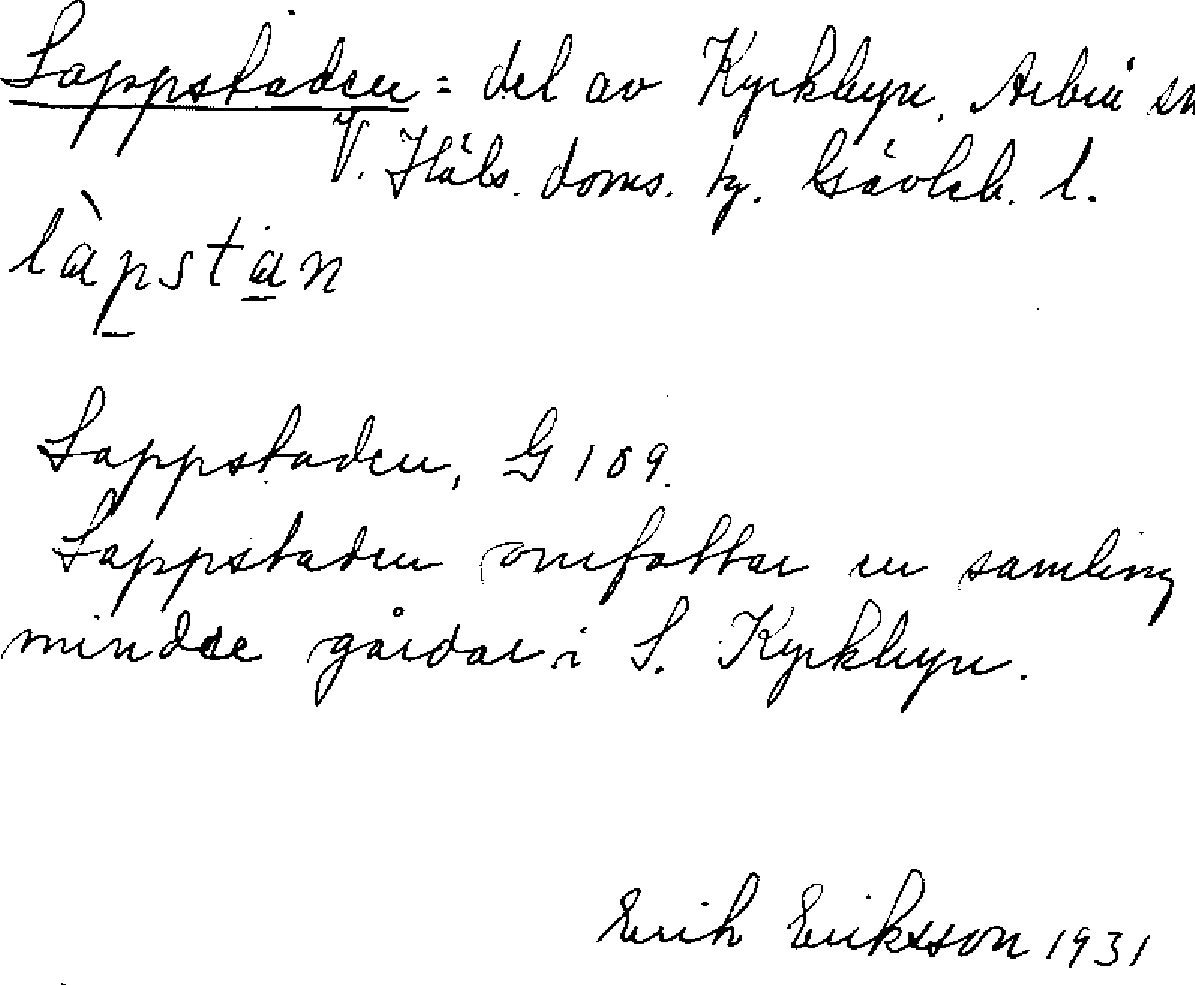 Lappstaden = del av Kyrkbyn. Arbrå sn
V. Häls. doms. tg. Gävleb. l.
làpstan
Lappstaden, G 109.
Lappstaden omfattar en samling
mindre gårdar i S. Kyrkbyn.
Erik Eriksson 1931